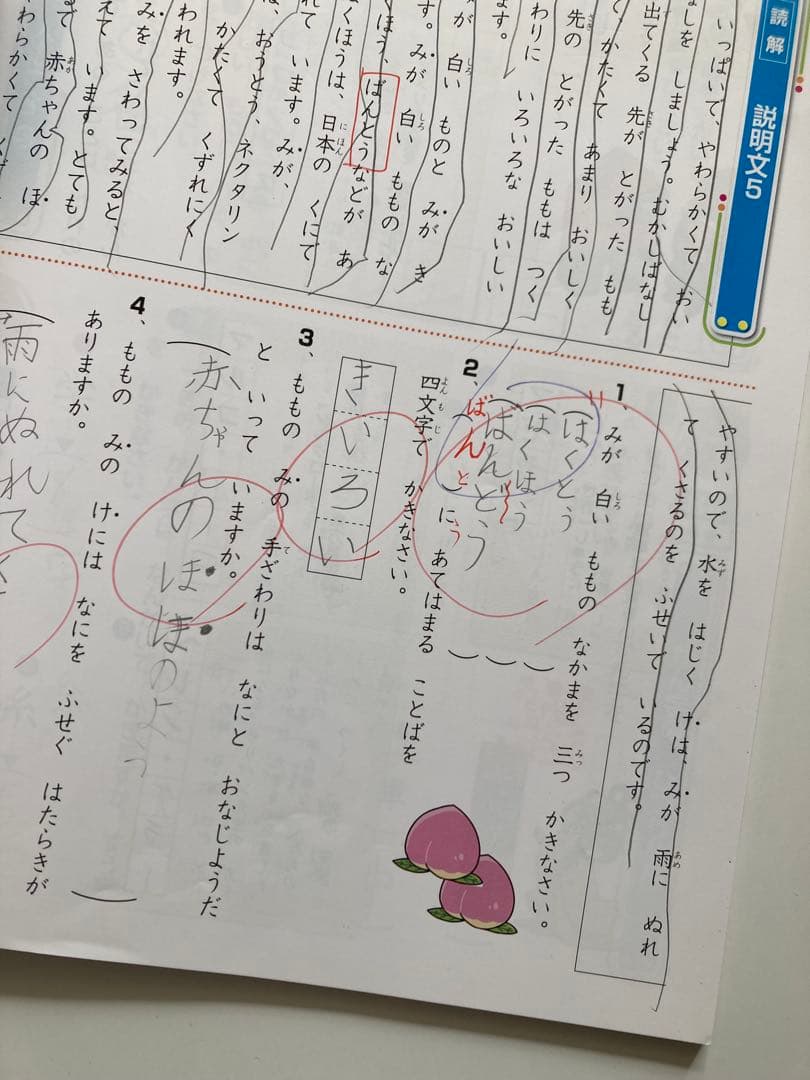 読解 説明文5
いっぱいで、やわらかくて おい
しましょう。むかしばなし
出てくる 先が とがった もも
かたくて あまり おいしく
先の とがった ももは つく
わりに いろいろな おいしい
ます。
みが 白い ものと みが き
す。みが 白い ももの な
くほう、ばんとうなどが あ
くほうは、日本の くにで
れて います。みが、
は、おうとう、ネクタリン
かたくて くずれにく
われます。
みを さわってみると、
えて います。とても
で 赤ちゃんの ほ
やわらかくて
やすいので、水を はじく けは、みが 雨に ぬれ
て くさるのを ふせいで いるのです。
1、みが 白い ももの なかまを 三つ かきなさい。
はくとう
はくほう
ばんどう
ばんとう
2、 に あてはまる ことばを
四文字で かきなさい。
きいろい
3、ももの みの 手ざわりは なにと おなじようだ
と いって いますか。
赤ちゃんのほほのよう
4、ももの みの けには なにを ふせぐ はたらきが
ありますか。
雨にぬれてく